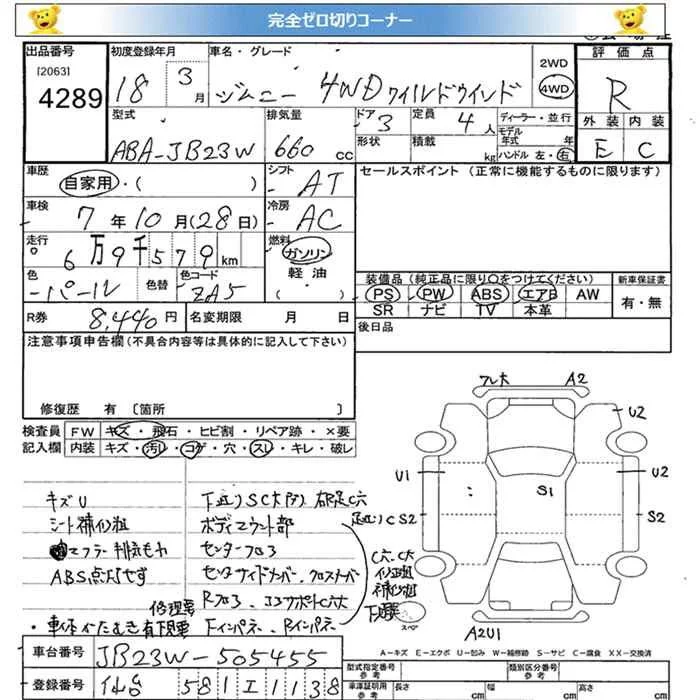 完全ゼロ切りコーナー
出品番号
[2063]
4289
初度登録年月
18 3月
車名・グレード
ジムニー 4WD ワイルドウインド
2WD
4WD
評価点
R
外装 内装
E C
型式
ABA-JB23W
排気量
660 cc
ドア
3
形状
定員
4人
積載
kg
ディーラー・並行
モデル年式 年
ハンドル 左・右
車歴
自家用・( )
シフト
AT
セールスポイント (正常に機能するものに限ります)
車検
7年10月(28日)
冷房
AC
走行
6万9千579km
燃料
ガソリン
軽油
( )
色
パール
色替
色コード
ZA5
装備品 (純正品に限り○をつけてください)
新車保証書
PS PW ABS エアB AW
有・無
SR ナビ TV 本革
R券
8,440円
名変期限 月 日
後日品
注意事項申告欄(不具合内容等は具体的に記入して下さい)
修復歴 有 [箇所 ]
検査員 FW キズ・飛石・ヒビ割・リペア跡・×要
記入欄 内装 キズ・汚レ・コゲ・穴・スレ・キレ・破レ
キズU
シート補修粗
マフラー排気もれ
ABS点灯せず
ボディマウント部
センターフロア
センターサイドメンバー、クロスメンバー
Rフロア、
修理要
・車体かたむき有下廻要 Fインパネ、Rインパネ
C穴、C大
補修粗
A2
U2
U1
U2
S1
S2
A2U1
スペア
A-キズ E-エクボ U-凹み W-補修跡 S-サビ C-腐食 XX-交換済
車台番号
JB23W-505455
登録番号
仙台 581 エ 1138
型式指定番号
参考
類別区分番号
参考
車庫証明用
参考
長さ cm
幅 cm
高さ cm